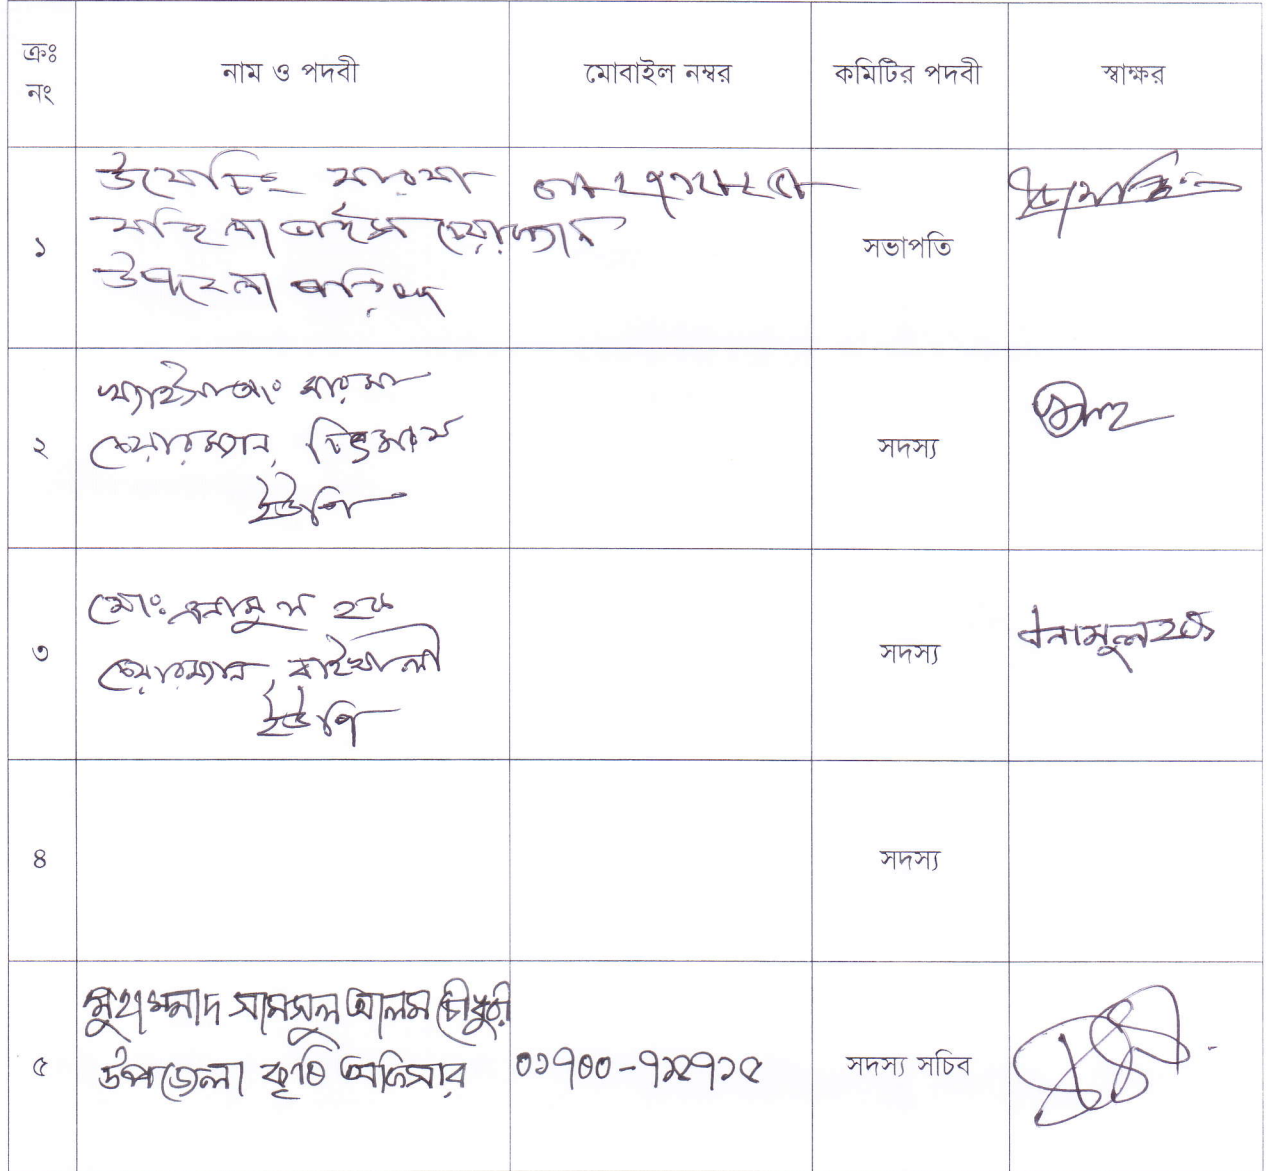 ক্রঃ নং
নাম ও পদবী
মোবাইল নম্বর
কমিটির পদবী
স্বাক্ষর
১
উমেচিং মারমা
মহিলা ভাইস চেয়ারম্যান
উপজেলা পরিষদ
সভাপতি
২
মারমা
চেয়ারম্যান, চিৎমরম
ইউপি
সদস্য
৩
মোঃ এনামুল হক
চেয়ারম্যান, রাইখালী
ইউপি
সদস্য
এনামুল হক
৪
সদস্য
৫
মুহাম্মাদ সামসুল আলম চৌধুরী
উপজেলা কৃষি অফিসার
সদস্য সচিব